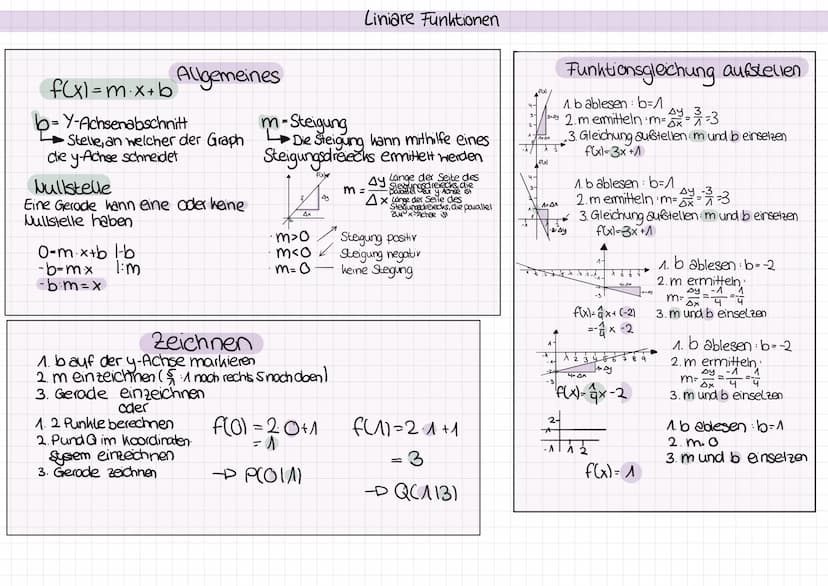 Liniare Funktionen
Allgemeines
f(x)=m·x+b
b= Y-Achsenabschnitt
Stelle, an welcher der Graph
die y-Achse schneidet
Nullstelle
Eine Gerade kann eine oder keine
Nullstelle haben
0=m·x+b |-b
-b=mx |:m
-b:m=x
m=Steigung
Die Steigung kann mithilfe eines
Steigungsdreiecks ermittelt werden
f(x)
Δy
Δx
m=
Δy Länge der Seite des
Steigungsdreiecks, die
parallel zur y-Achse ist
Δx Länge der Seite des
Steigungsdreiecks, die parallel
zur x-Achse ist
· m>0 Steigung positiv
· m<0 Steigung negativ
· m=0 keine Stegung
Zeichnen
1. b auf der y-Achse markieren
2. m einzeichnen (5/1 : 1 nach rechts, 5 nach oben)
3. Gerade einzeichnen
oder
1. 2 Punkte berechnen
2. P und Q im Koordinaten-
system einzeichnen
3. Gerade zeichnen
f(0)=2·0+1
=1
→ P(0|1)
f(1)=2·1+1
=3
→ Q(1|3)
Funktionsgleichung aufstellen
1. b ablesen: b=1
2. m emitteln: m=Δy/Δx=3/1=3
3. Gleichung aufstellen m und b einsetzen
f(x)=3x+1
1. b ablesen: b=1
2. m emitteln: m=Δy/Δx=-3/1=3
3. Gleichung aufstellen m und b einsetzen
f(x)=3x+1
1. b ablesen: b=-2
2. m ermitteln:
m=Δy/Δx=-1/4=1/4
3. m und b einsetzen
f(x)=1/4x+(-2)
=-1/4x-2
1. b ablesen: b=-2
2. m ermitteln:
m=Δy/Δx=-1/4=1/4
3. m und b einsetzen
f(x)=1/4x-2
1. b ablesen: b=1
2. m=0
3. m und b einsetzen
f(x)=1